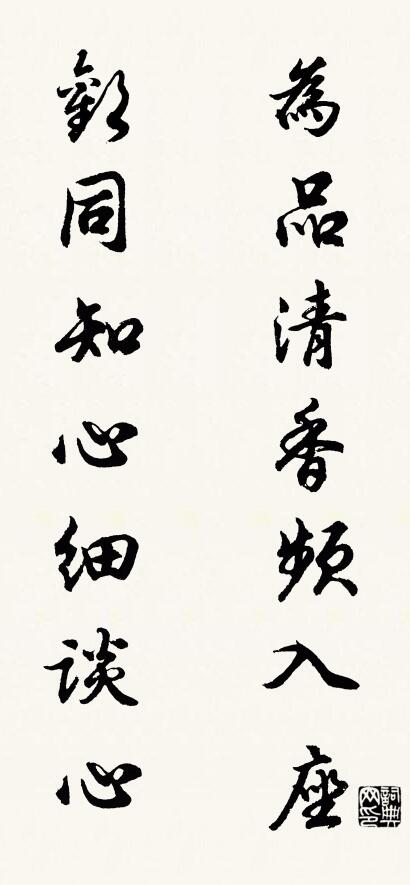 為品清香頻入座
歡同知心細談心
詞典网印